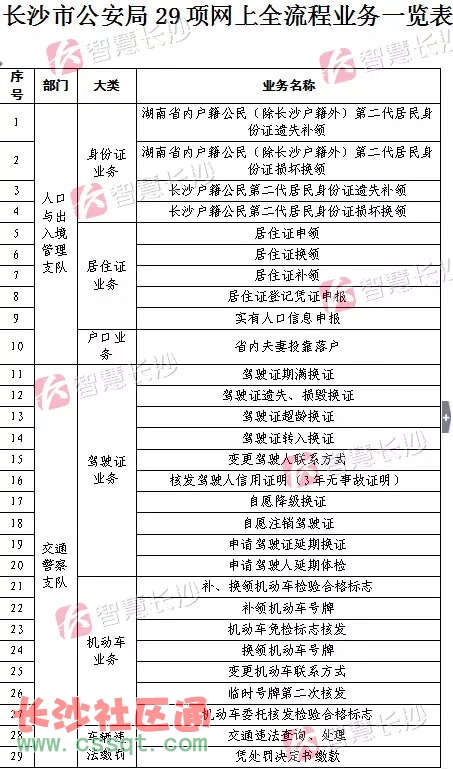 长沙市公安局29项网上全流程业务一览表
序号 部门 大类 业务名称
人口与出入境管理支队
身份证业务
1 湖南省内户籍公民（除长沙户籍外）第二代居民身份证遗失补领
2 湖南省内户籍公民（除长沙户籍外）第二代居民身份证损坏换领
3 长沙户籍公民第二代居民身份证遗失补领
4 长沙户籍公民第二代居民身份证损坏换领
居住证业务
5 居住证申领
6 居住证换领
7 居住证补领
8 居住证登记凭证申报
9 实有人口信息申报
户口业务
10 省内夫妻投靠落户
交通警察支队
驾驶证业务
11 驾驶证期满换证
12 驾驶证遗失、损毁换证
13 驾驶证超龄换证
14 驾驶证转入换证
15 变更驾驶人联系方式
16 核发驾驶人信用证明（3年无事故证明）
17 自愿降级换证
18 自愿注销驾驶证
19 申请驾驶证延期换证
20 申请驾驶人延期体检
机动车业务
21 补、换领机动车检验合格标志
22 补领机动车号牌
23 机动车免检标志核发
24 换领机动车号牌
25 变更机动车联系方式
26 临时号牌第二次核发
27 机动车委托核发检验合格标志
车辆违法缴罚
28 交通违法查询、处理
29 凭处罚决定书缴款
智慧长沙
长沙社区通
www.cssqt.com